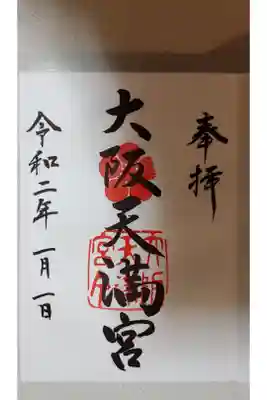 奉拝
大阪天満宮
令和二年 一月一日